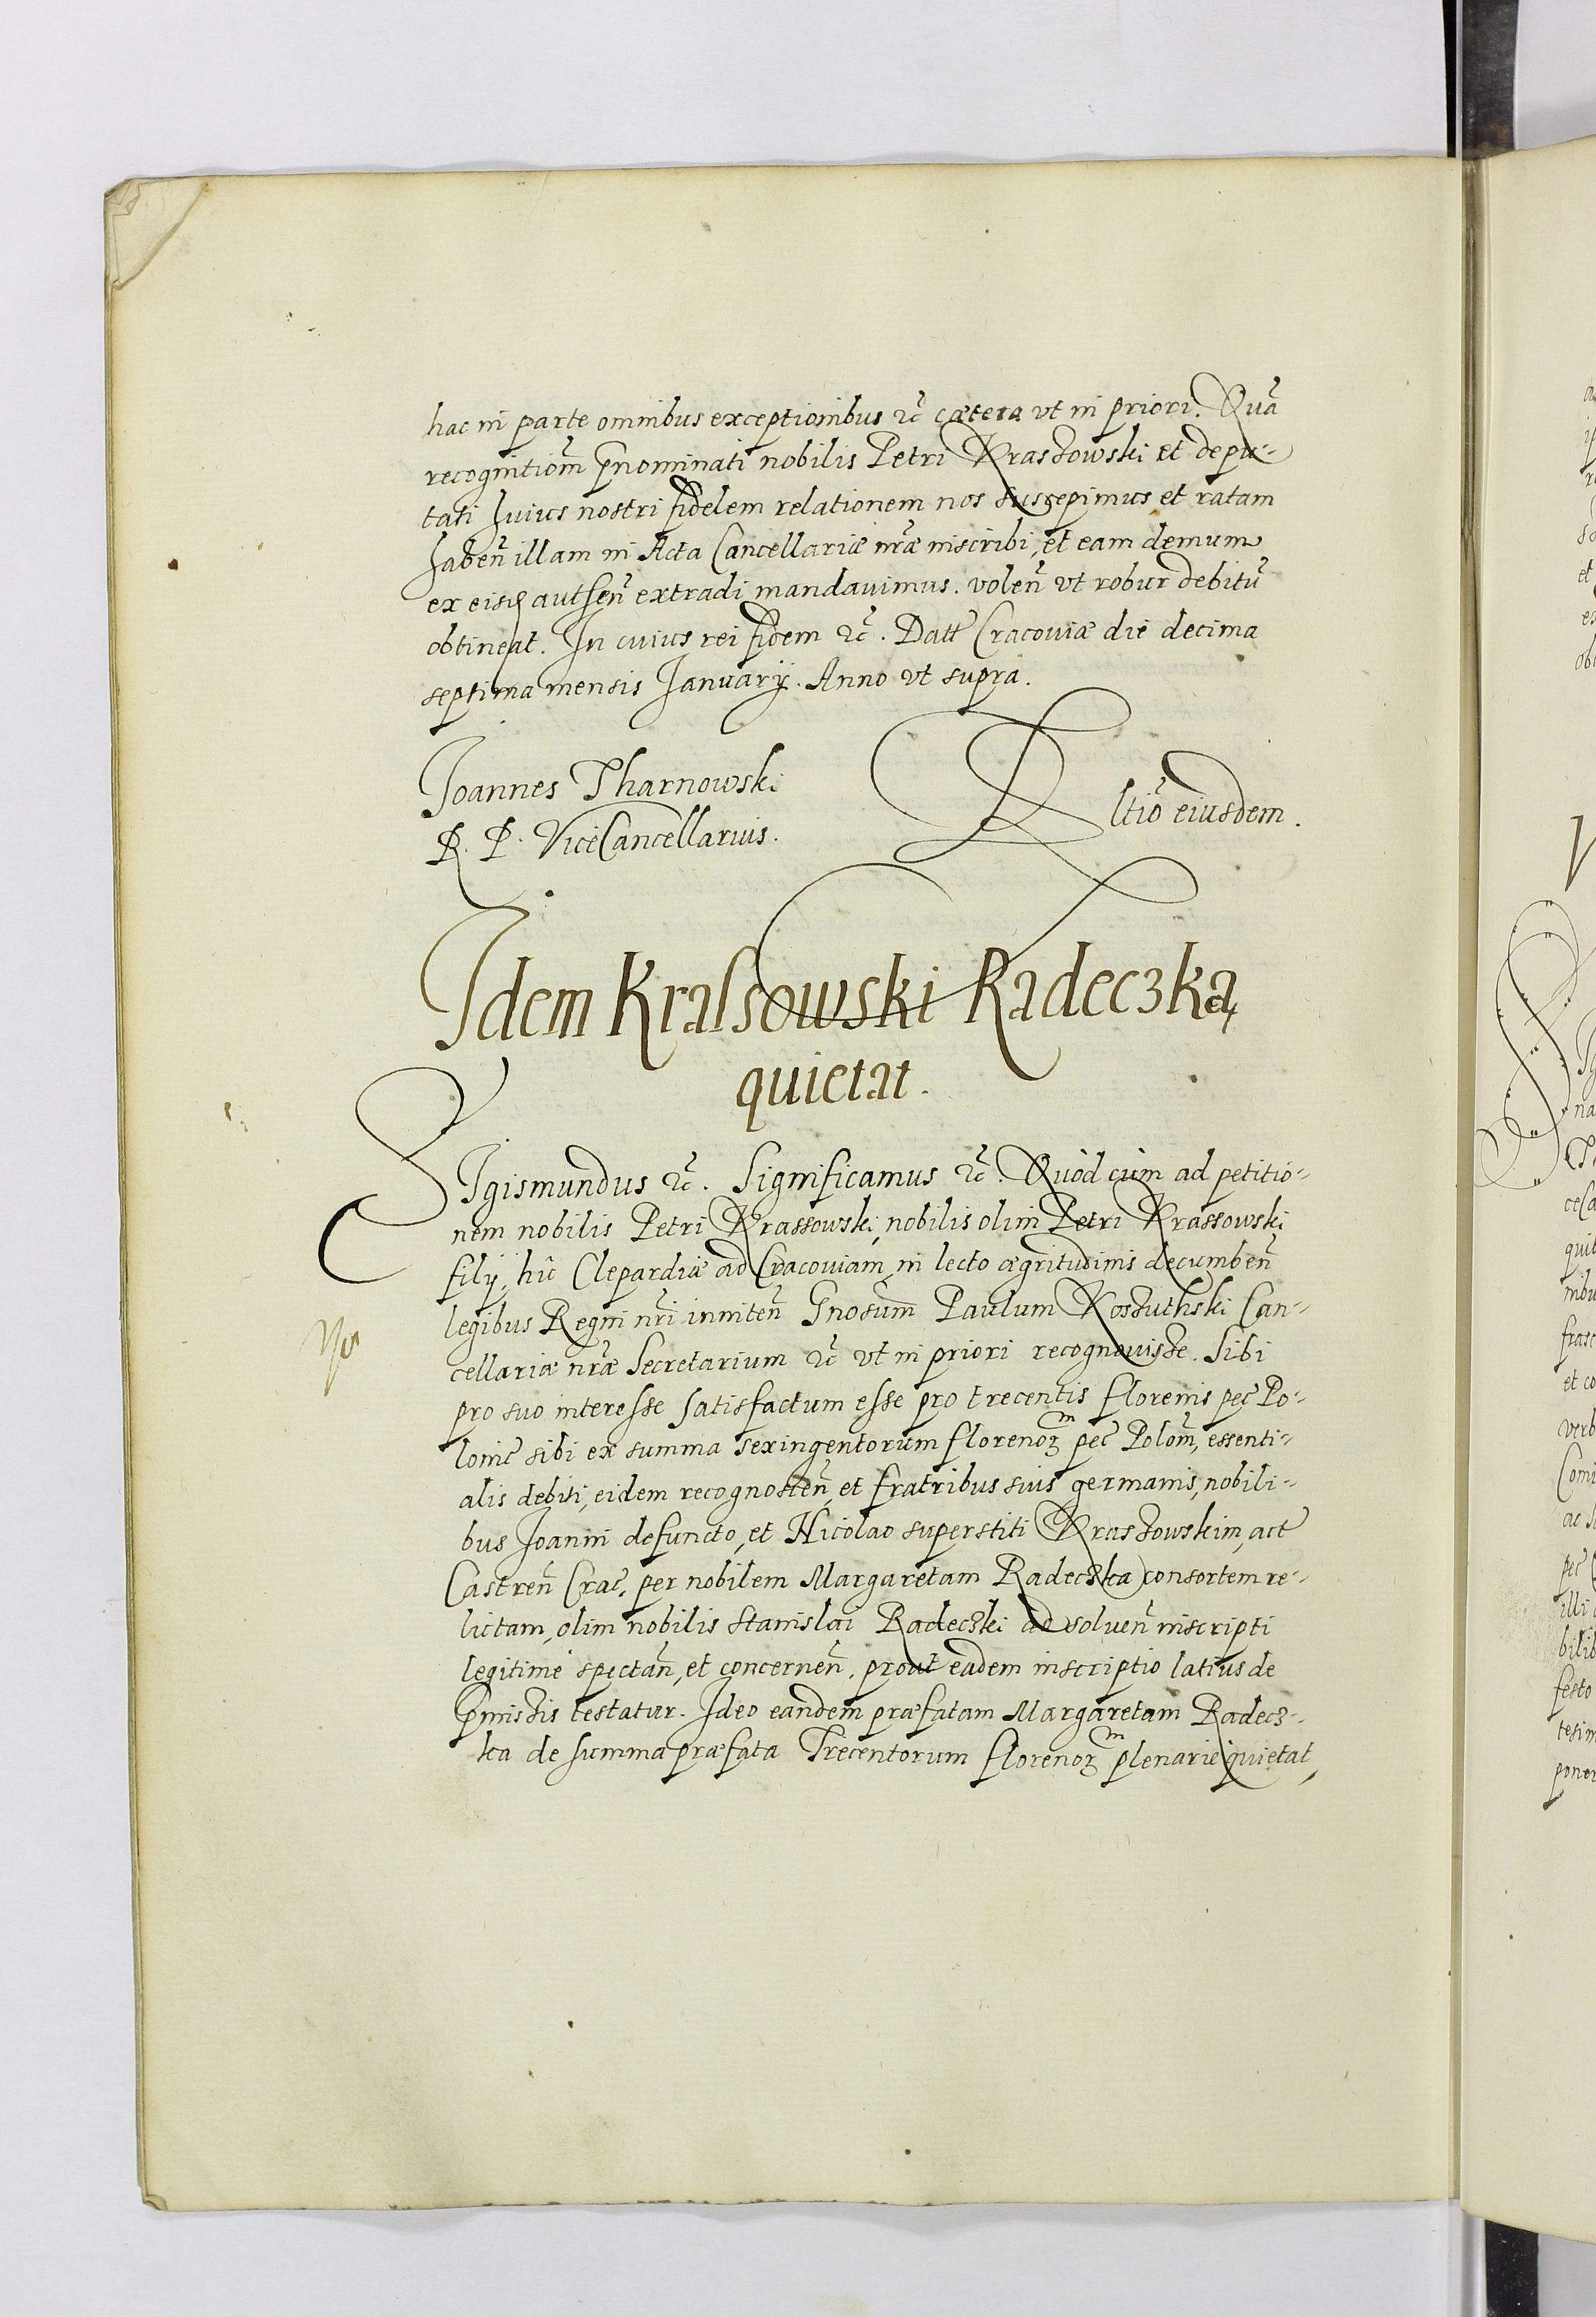 hac in parte omnibus exceptionibus ꝛc̃ cætera vt in priori. Quã
recognitiom̃ p̃nominati nobilis Petri Krassowski et depu-
tati huius nostri fidelem relationem nos suscepimus et ratam
haben̄ illam in Acta Cancellariæ nr̃æ inscribi, et eam demum
ex eisd authen̄ extradi mandauimus. volen̄ vt robur debitũ
obtineat. In cuius rei fidem ꝛc̃. Datt Cracoviæ die decima
septima mensis Januarij. Anno vt supra.
Joannes Tharnowski
R. P. ViceCancellarius.
Rltiõ eiusdem.
Idem Krassowski Radeczką
quietat.
SIgismundus ꝛc̃. Significamus ꝛc̃. Quòd cùm ad petitio-
nem nobilis Petri Krassowski, nobilis olim Petri Krassowski
filij, hîc Clepardiæ ad Cracoviam, in lecto ægritudinis decumben̄
legibus Regni nr̃i inniten̄ Gnosum̃ Paulum Kossuthski Can-
cellariæ nr̃æ Secretarium ꝛc̃ vt in priori recognovisse. Sibi
pro suo interesse satisfactum esse pro trecentis florenis pec̃ Po-
lonic̃ sibi ex summa sexingentorum florenoꝝ m pec̃ Polom̃, essenti-
alis debiti, eidem recognoscen̄, et fratribus suis germanis, nobili-
bus Joanni defuncto, et Nicolao superstiti Krassowskim, act
Castren̄ Crac̃, per nobilem Margaretam Radeczka consortem re-
lictam, olim nobilis Stanislai Radeczki ad soluen̄ inscripti
legitimè spectan̄, et concernen̄, prout eadem inscriptio latius de
p̃missis testatur. Ideo eandem præfatam Margaretam Radecz-
ka de summa præfata Trecentorum florenoꝝ m plenariè quietat,